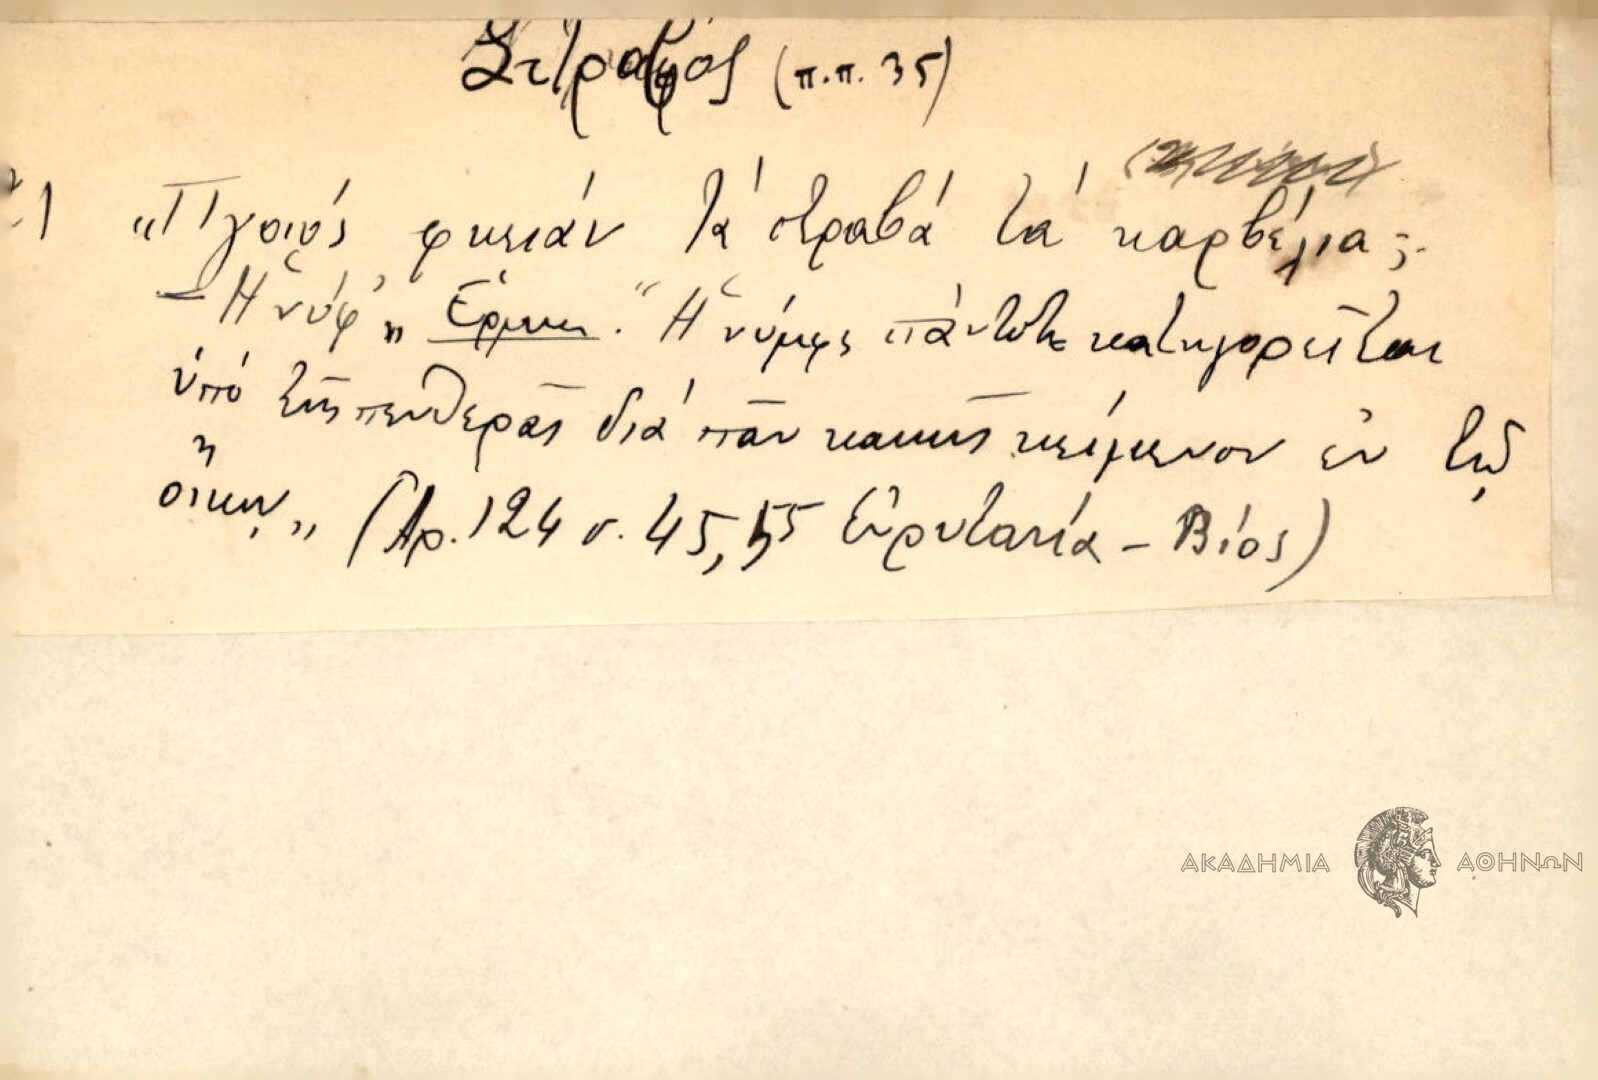 Στραβός (π.π. 35)
"Ποιός φκειάν τά στραβά τά καρβέλια;
— Ἡ νύφ'" Ἑρμην. "Ἡ νύμφη πάντοτε κατηγορεῖται
ὑπό τῆς πενθερᾶς διά πᾶν κακῶς κείμενον ἐν τῷ
οἴκῳ" (Ἀρ. 124 σ. 45, 55 Εὐρυτανία – Βίος)
ΑΚΑΔΗΜΙΑ ΑΘΗΝΩΝ